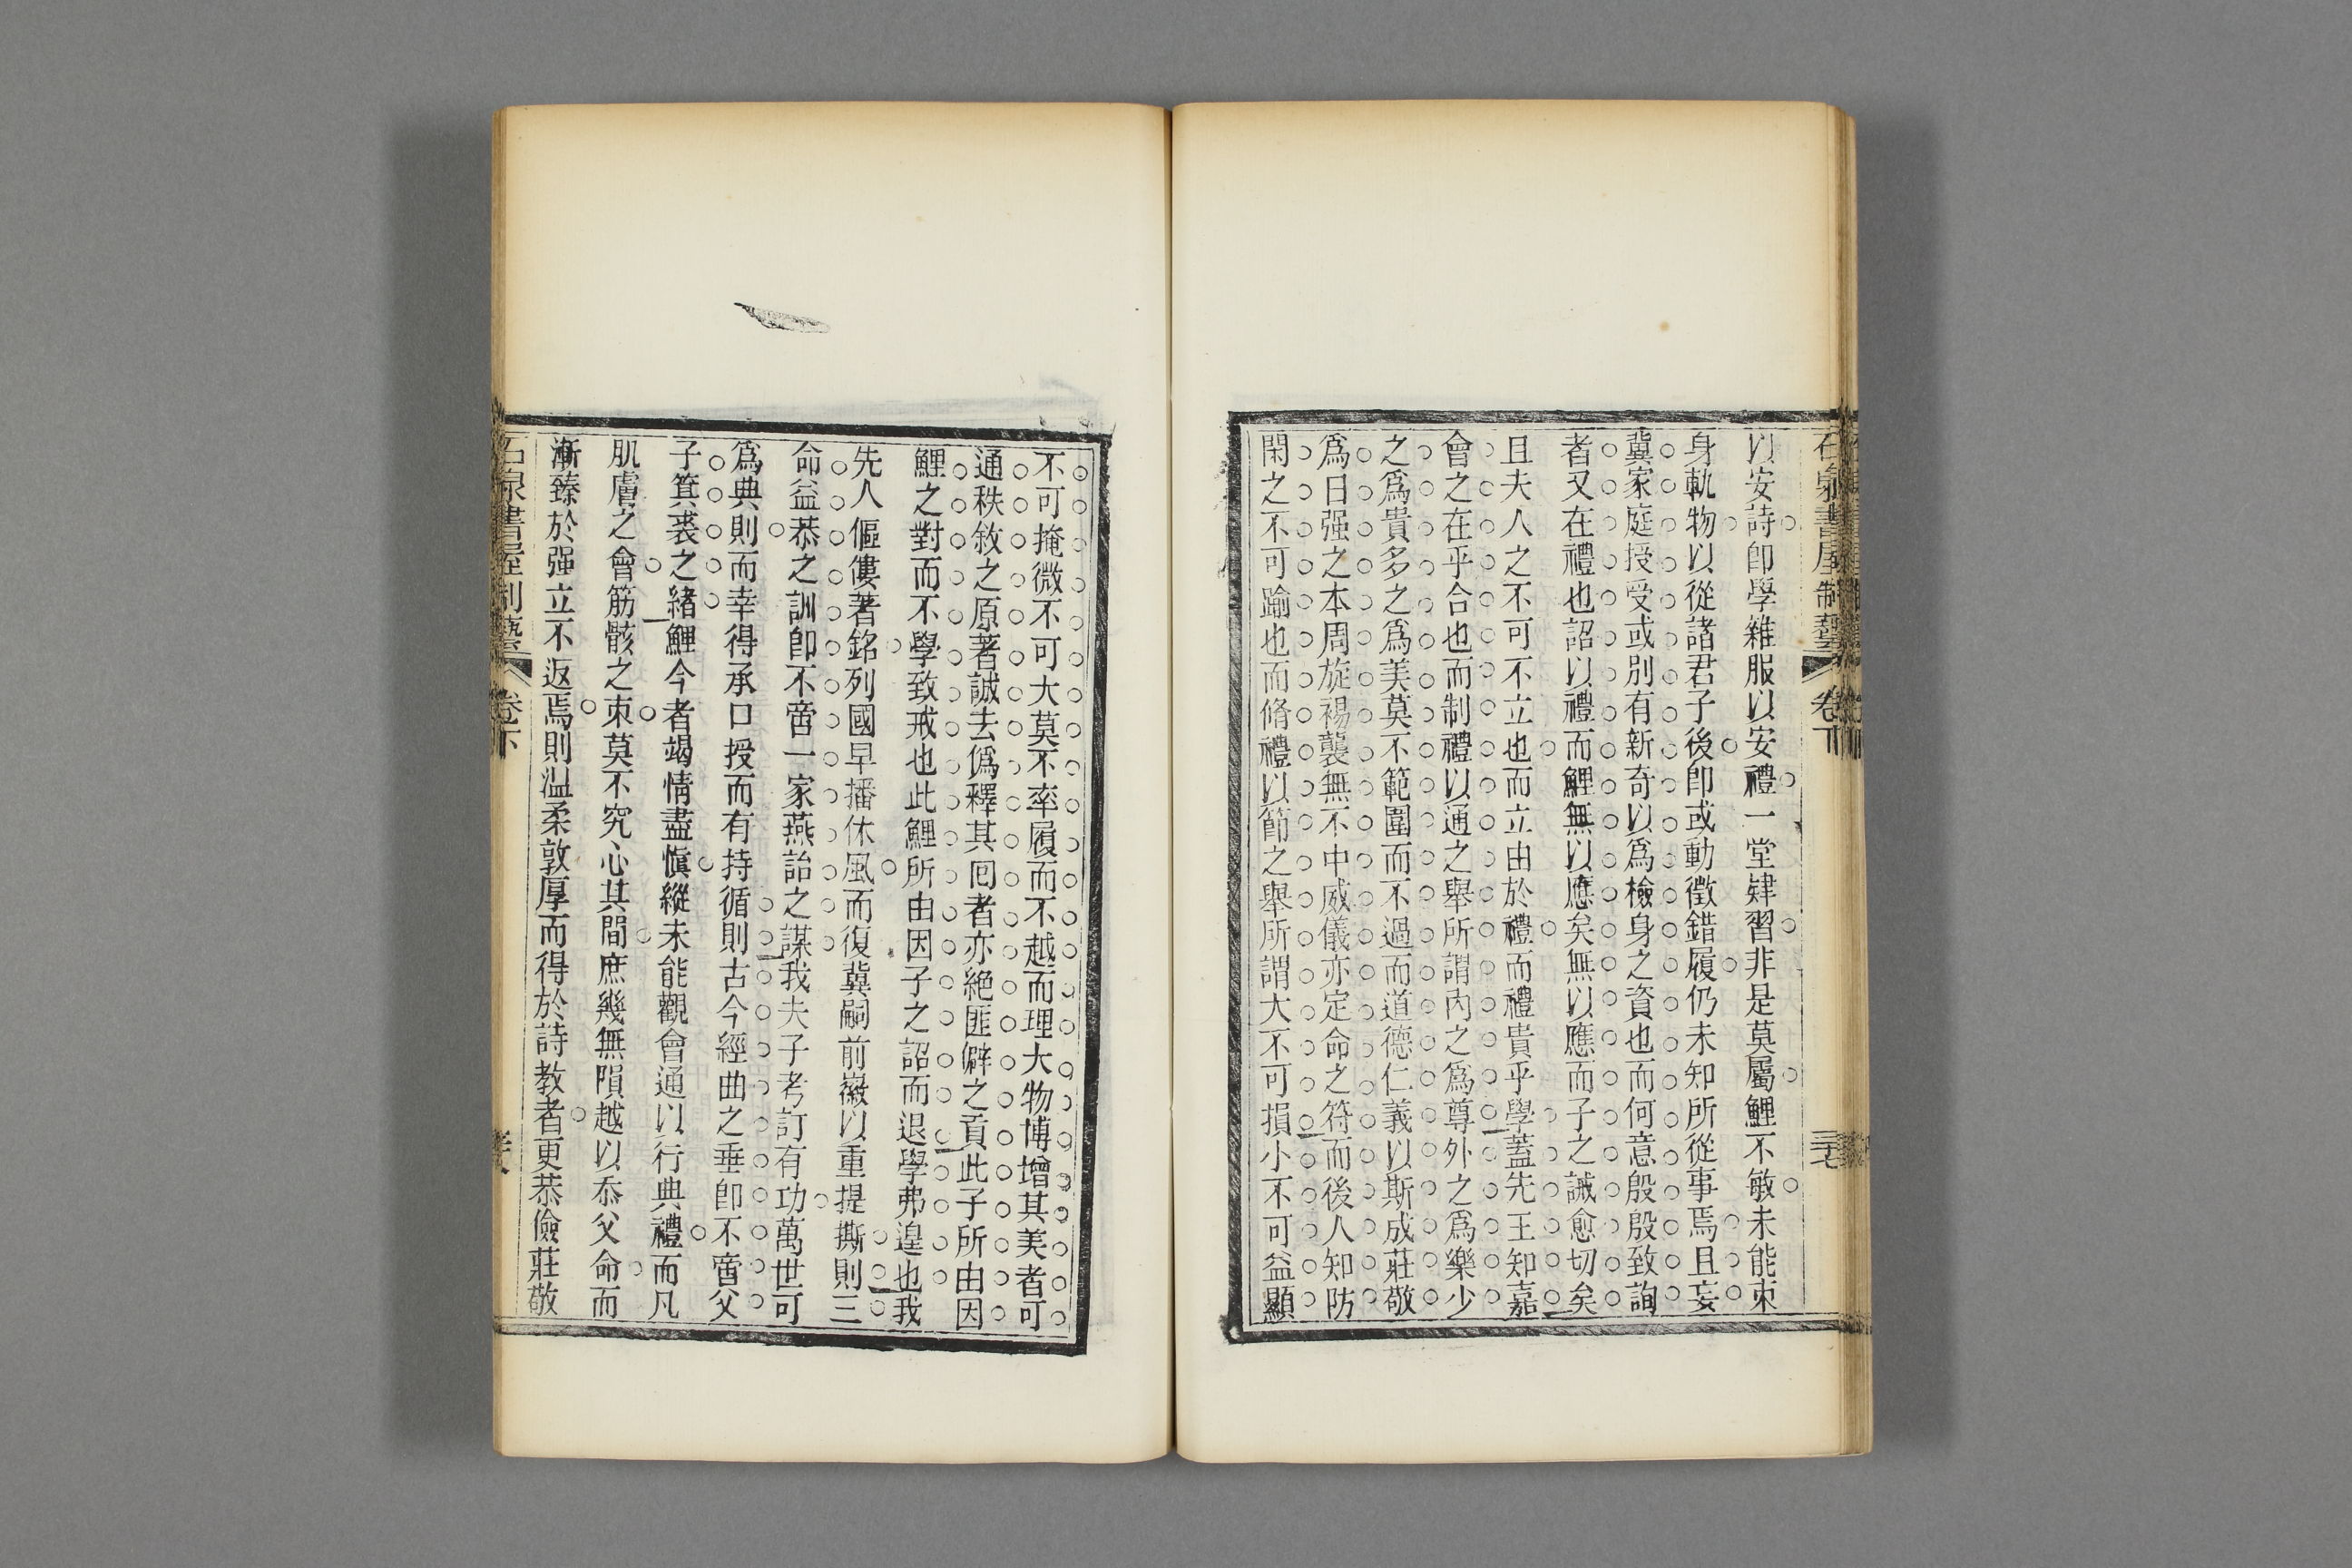 石泉書屋制藝 卷下 三十七
以安詩卽學雜服以安禮一堂肄習非是莫屬鯉不敏未能束
身軌物以從諸君子後卽或動徵錯履仍未知所從事焉且妄
冀家庭授受或別有新奇以爲檢身之資也而何意殷殷致詢
者又在禮也詔以禮而鯉無以應矣無以應而子之誡愈切矣
且夫人之不可不立也而立由於禮而禮貴乎學蓋先王知嘉
會之在乎合也而制禮以通之舉所謂內之爲尊外之爲樂少
之爲貴多之爲美莫不範圍而不過而道德仁義以斯成莊敬
爲日强之本周旋裼襲無不中威儀亦定命之符而後人知防
閑之不可踰也而脩禮以節之舉所謂大不可損小不可益顯
不可掩微不可大莫不率履而不越而理大物博增其美者可
通秩敘之原著誠去僞釋其囘者亦絶匪僻之貢此子所由因
鯉之對而不學致戒也此鯉所由因子之詔而退學弗遑也我
先人傴僂著銘列國早播休風而復冀嗣前徽以重提撕則三
命益恭之訓卽不啻一家燕詒之謀我夫子考訂有功萬世可
爲典則而幸得承口授而有持循則古今經曲之垂卽不啻父
子箕裘之緒鯉今者竭情盡愼縱未能觀會通以行典禮而凡
肌膚之會筋骸之束莫不究心其間庶幾無隕越以忝父命而
漸臻於强立不返焉則溫柔敦厚而得於詩教者更恭儉莊敬
石泉書屋制藝 卷下